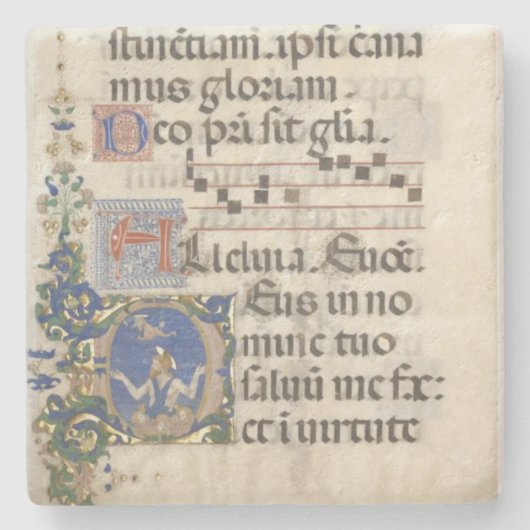 stinc̄tiam. ipsi cana
mus gloriam.
Deo pr̄i sit gl̄ia.
Alleluia. Euoē.
Deus in no
mine tuo
saluū me fac:
et ī uirtute